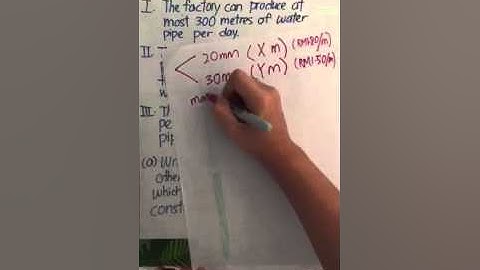 I. The factory can produce at
most 300 metres of water
pipe per day.
II. T
20mm (X m) (RM1.80/m)
30m (Y m) (RM1.50/m)
III. T
pe
pip
(a) Wr
othe
which
const